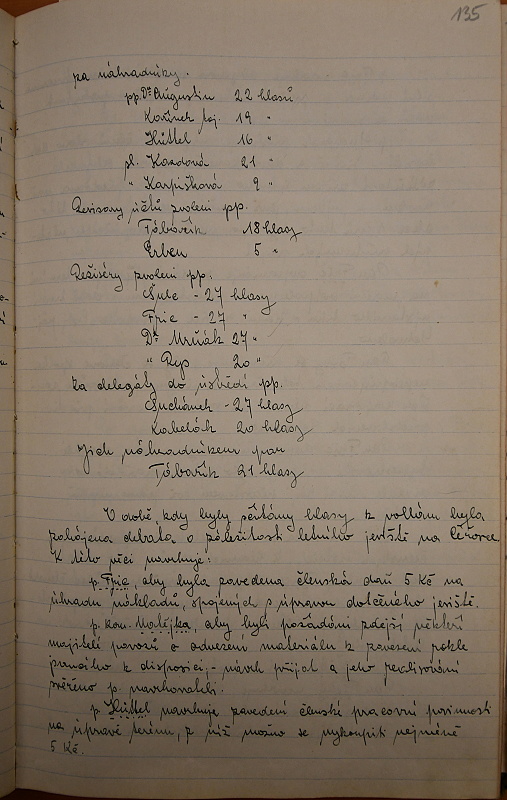 135
za náhradníky.
pp. Dr Augustin 22 hlasů
Kořínek taj. 19 "
Hüttel 16 "
pl. Kazdová 21 "
" Karpíšková 9 "
Revisory účtů zvoleni pp.
Tobořík 18 hlasy
Erben 5 "
Režiséry zvoleni pp.
Šulc - 27 hlasy
Fric - 27 "
Dr Mrňák 27 "
" Rys 20 "
Za delegáty do ústředí pp.
Suchánek - 27 hlasy
Kabelák 20 hlasy
Jich náhradníkem pan
Tobořík 21 hlasy
V době kdy byly sčítány hlasy k volbám byla
zahájena debata o záležitosti letního jeviště na
K této věci navrhuje:
p. Fric, aby byla zavedena členská daň 5 Kč na
úhradu nákladů, spojených s úpravou dotčeného jeviště.
p. kon. Matějka, aby byli požádáni zdejší někteří
majitelé povozů o odvezení materiálu k zavezení
daného k disposici. - návrh přijat a jeho realisování
svěřeno p. navrhovateli.
p. Hüttel navrhuje zavedení členské pracovní povinnosti
na úpravě terénu, z níž možno se vykoupiti nejméně
5 Kč.